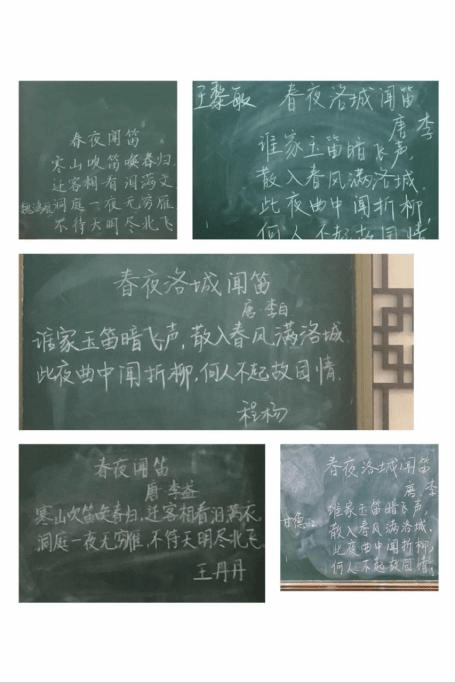 春夜闻笛
寒山吹笛唤春归
迁客相看泪满文
洞庭一夜无穷雁
不待天明尽北飞
王黎敏
春夜洛城闻笛
唐 李
谁家玉笛暗飞声,
散入春风满洛城.
此夜曲中闻折柳,
何人不起故园情
春夜洛城闻笛
唐·李白
谁家玉笛暗飞声,散入春风满洛城.
此夜曲中闻折柳,何人不起故园情.
程杨
春夜闻笛
唐·李益
寒山吹笛唤春归,迁客相看泪满衣.
洞庭一夜无穷雁,不待天明尽北飞.
王丹丹
春夜洛城闻笛
唐 李
谁家玉笛暗飞声,
散入春风满洛城.
此夜曲中闻折柳,
何人不起故园情.